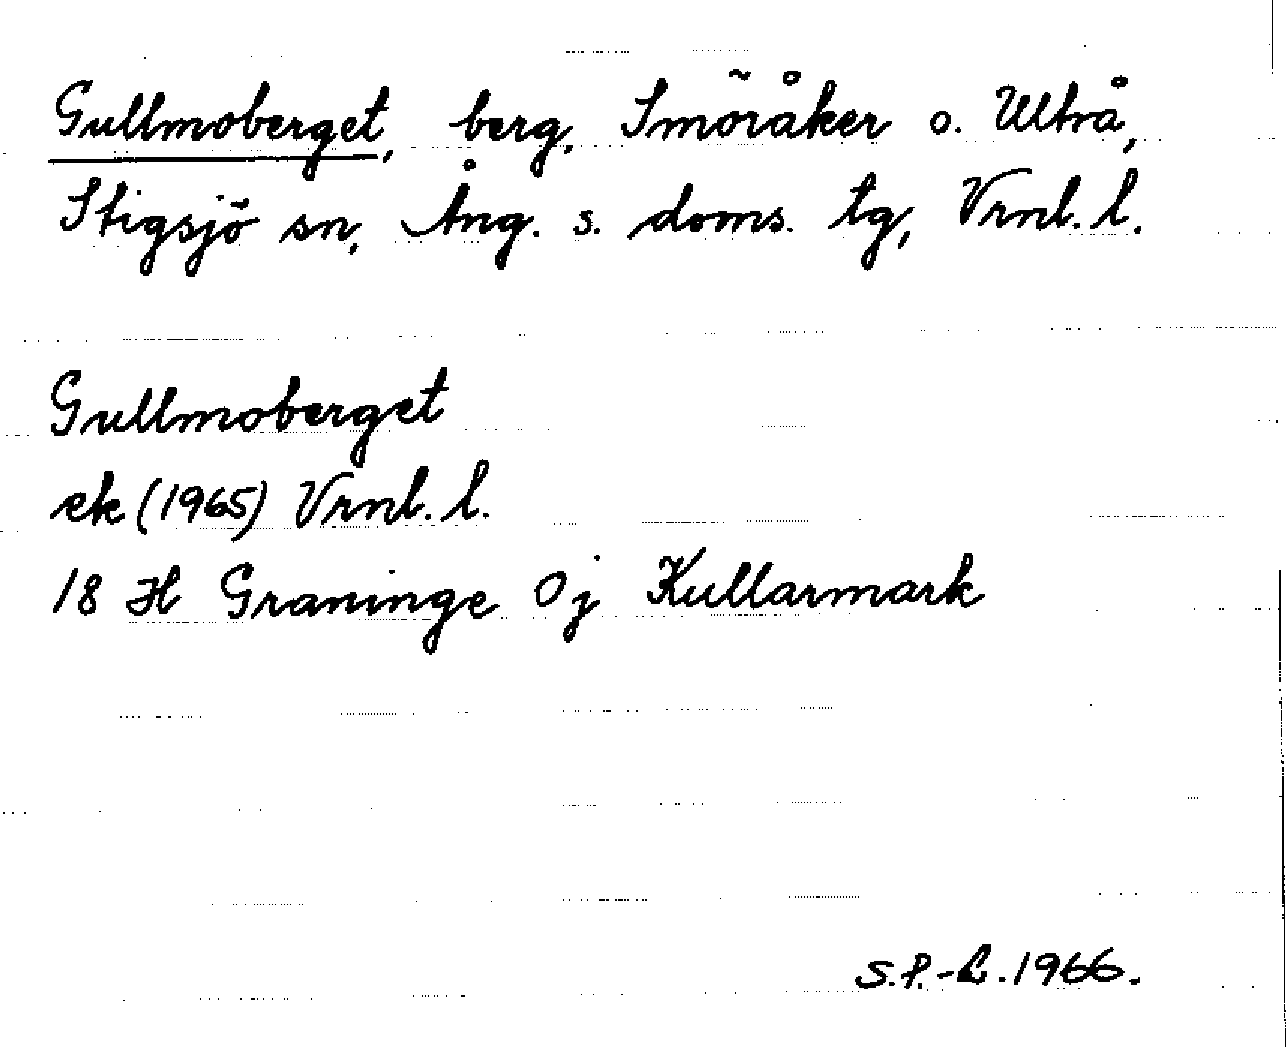 Gullmoberget, berg, Smöråker o. Ultrå,
Stigsjö sn, Ång. s. doms. tg, Vrnl. l.
Gullmoberget
ek (1965) Vrnl. l.
18 H Graninge Oj Kullarmark
S.P.-L. 1966.